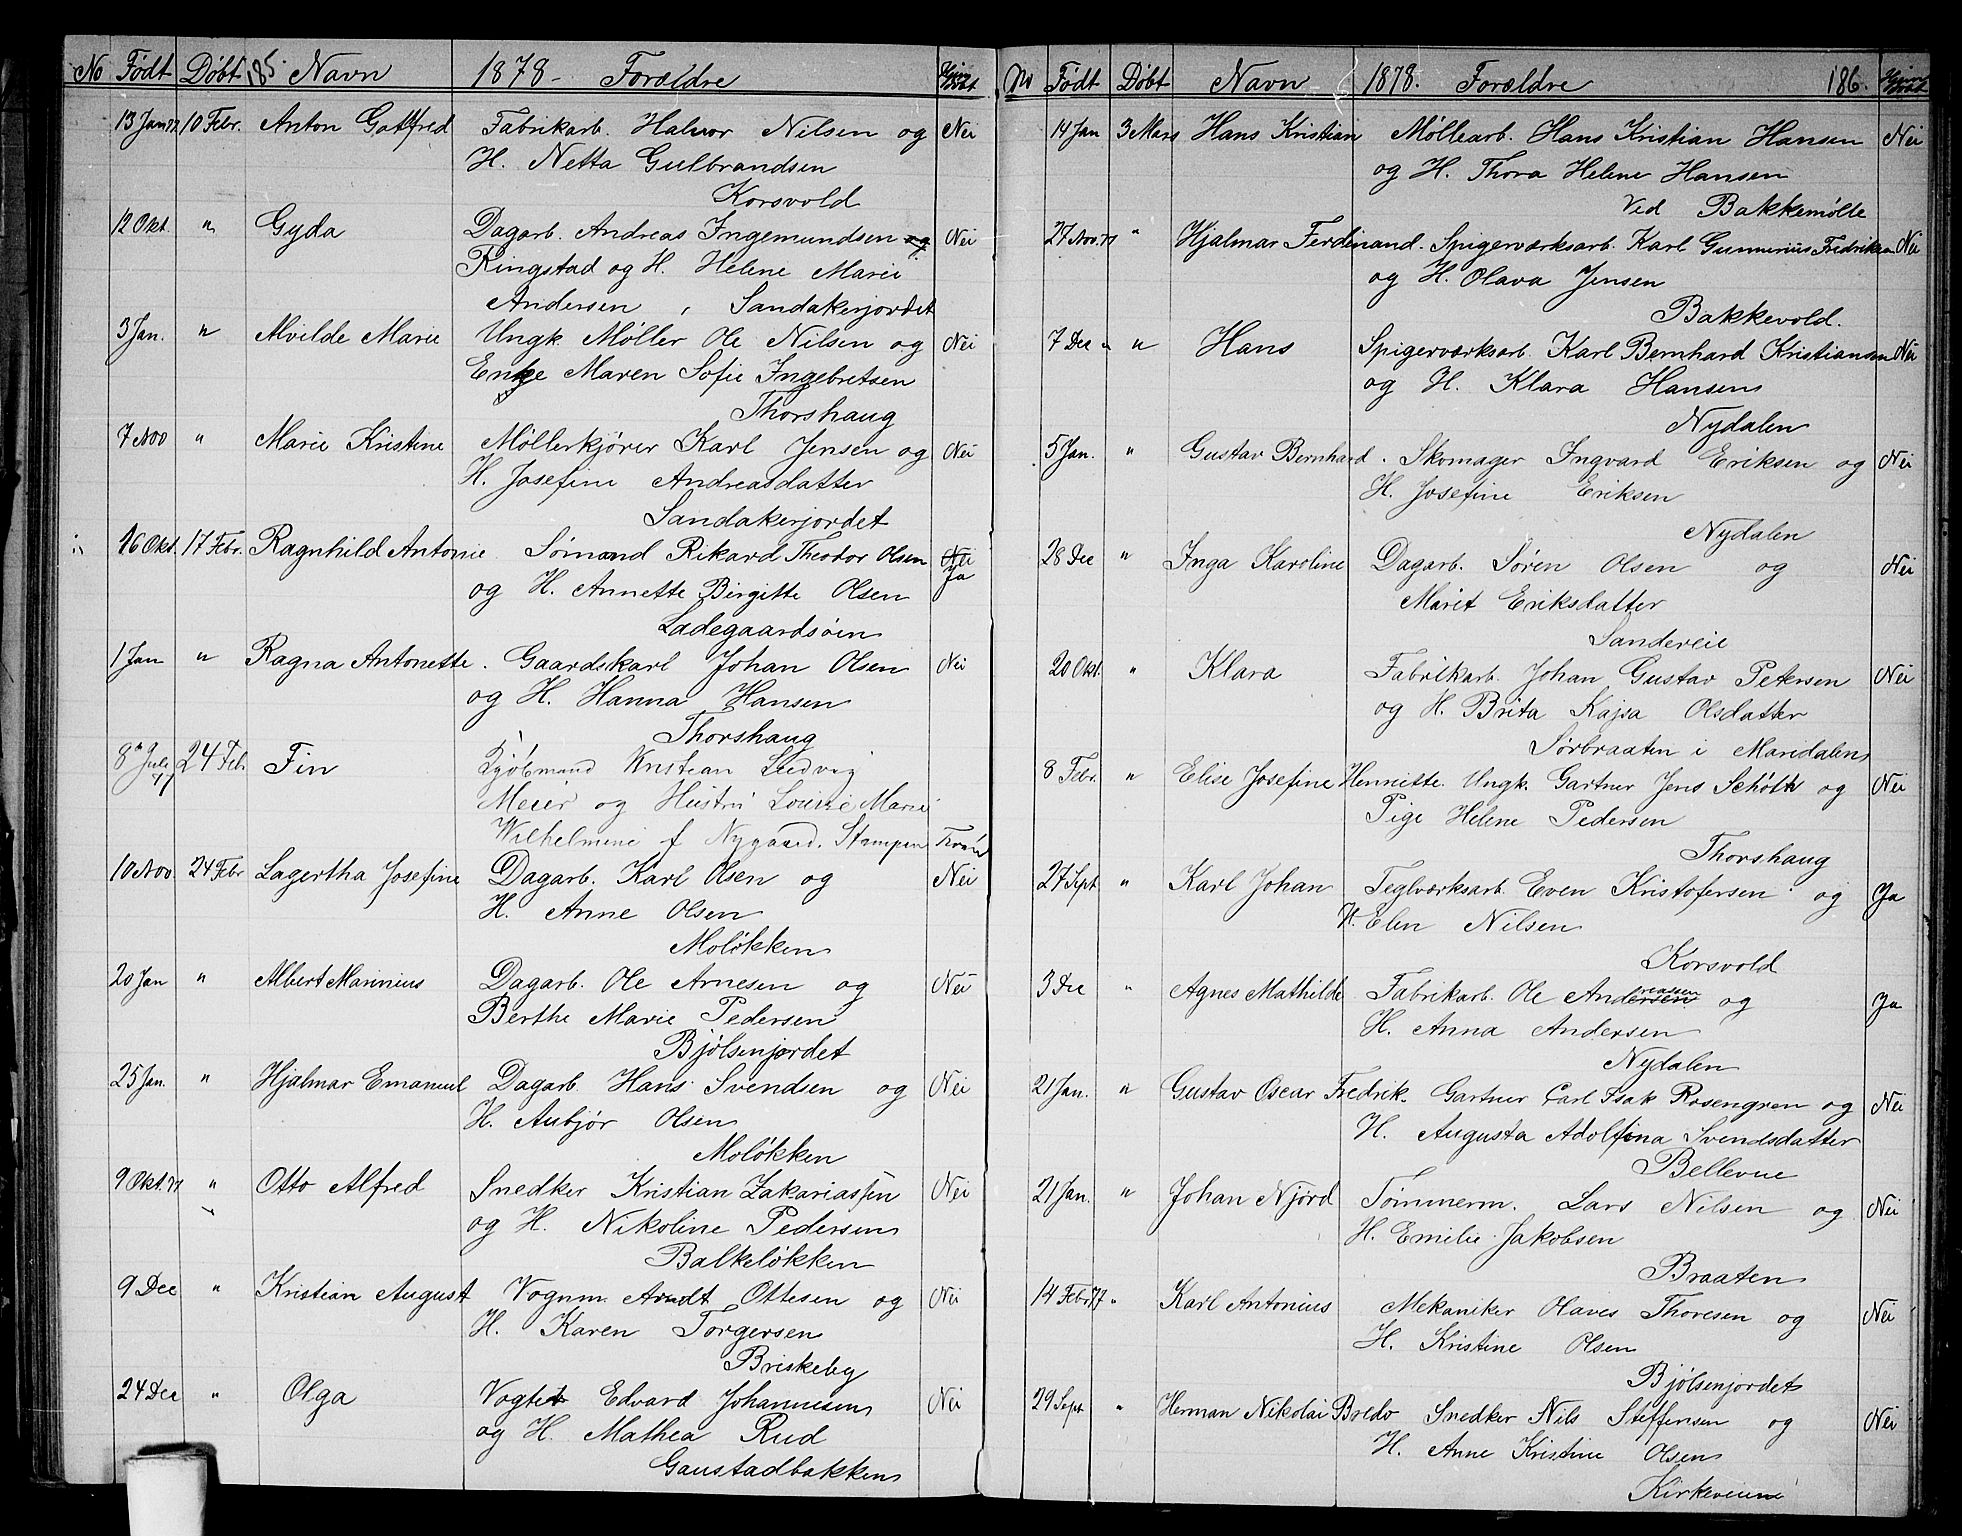 No Født Døbt 185. Navn 1878. Forældre Hjem Døbt
13 Jan 77 10 Febr. Anton Gottfred Fabrikarb. Halvor Nilsen og Nei
H. Netta Gulbrandsen
Korsvold
12 Okt. " Gyda Dagarb. Andreas Ingemundsen og Nei
Ringstad og H. Helene Marie
Andersen, Sandakerjordet
3 Jan. " Alvilde Marie Ungk. Møller Ole Nilsen og Nei
Enke Maren Sofie Ingebretsen
Thorshaug
7 Nov " Marie Kristine Møllerkjører Karl Jensen og Nei
H. Josefine Andreasdatter
Sandakerjordet
16 Okt. 17 Febr. Ragnhild Antonie Sømand Rikard Theodor Olsen Nei
og H. Annette Birgitte Olsen Ja
Ladegaardsøen
1 Jan " Ragna Antonette. Gaardskarl Johan Olsen Nei
og H. Hanna Hansen
Thorshaug
8de Juli 77 24 Feb. Fin Kjøbmand Kristian Ludvig
Meier og Hustru Louise Marie
Wilhelmine f Nygaard. Stampen
10 Nov 24 Febr Lagertha Josefine Dagarb. Karl Olsen og Nei
H. Anne Olsen
Moløkken
20 Jan " Albert Marinius Dagarb. Ole Arnesen og Nei
Berthe Marie Pedersen
Bjølsenjordet
25 Jan. " Hjalmar Emanuel Dagarb. Hans Svendsen og Nei
H. Aubjør Olsen
Moløkken
9 Okt. 77 " Otto Alfred Snedker Kristian Zakariassen Nei
og H. Nikoline Pedersen
Balkeløkken
9 Dec " Kristian August Vognm. Arndt Ottesen og Nei
H. Karen Torgersen
Briskeby
24 Dec " Olga Vogter Edvard Johannesen Nei
og H. Mathea Rud
Gaustadbakken
No Født Døbt Navn 1878. Forældre 186. Hjem Døbt
14 Jan 3 Mars Hans Kristian Møllearb. Hans Kristian Hansen Nei
og H. Thora Helene Hansen
Ved Bakkemølle
27 Nov. 77 " Hjalmar Ferdinand. Spigerværksarb. Karl Gunnerius Fredriksen Nei
og H. Olava Jensen
Bakkevold.
7 Dec " " Hans Spigerværksarb. Karl Bernhard Kristiansen Nei
og H. Klara Hansen
Nydalen
5 Jan. " Gustav Bernhard. Skomager Ingvard Eriksen og Nei
H. Josefine Eriksen
Nydalen
28 Dec " Inga Karoline Dagarb. Søren Olsen og Nei
Marit Eriksdatter
Sandereie
20 Okt. " Klara Fabrikarb. Johan Gustav Petersen Nei
og H. Brita Kajsa Olsdatter
Sørbraaten i Maridalen
8 Febr. " Elise Josefine Henriette. Ungk. Gartner Jens Schøtt og Nei
Pige Helene Pedersen
Thorshaug
27 Sept " Karl Johan Teglværksarb. Even Kristofersen og Ja
H. Elen Nilsen
Korsvold
3 Dec " Agnes Mathilde Fabrikarb. Ole Andreassen og Ja
H. Anna Andersen
Nydalen
21 Jan. " Gustav Oscar Fredrik. Gartner Carl Isak Rosengren og Nei
H. Augusta Adolfina Svendsdatter
Bellevue
21 Jan. " Johan Njörd Tømmerm. Lars Nilsen og Nei
H. Emilie Jakobsen
Braaten
14 Febr. 77 " Karl Antonius Mekaniker Olaves Thoresen og Nei
H. Kristine Olsen
Bjølsenjordet
29 Sept " Herman Nikolai Bredo Snedker Nils Steffensen og Nei
H. Anne Kristine Olsen
Kirkeveien